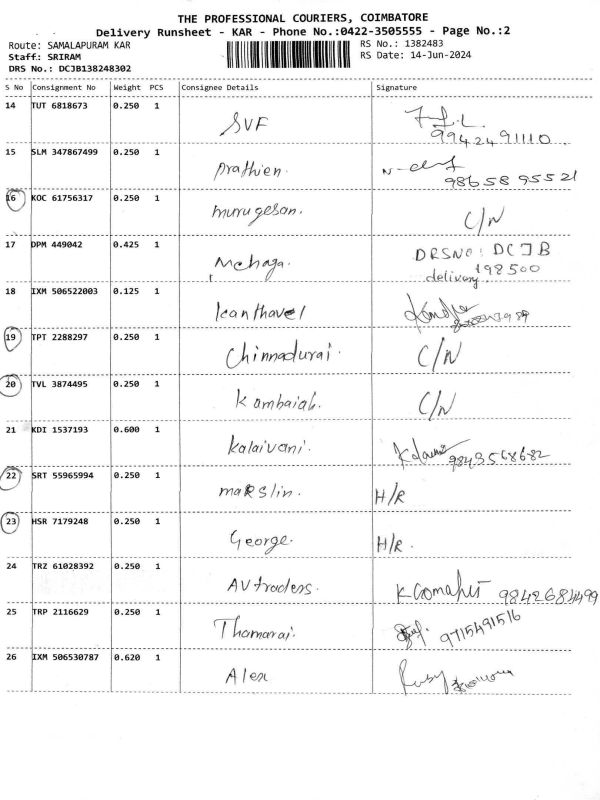 THE PROFESSIONAL COURIERS, COIMBATORE
Delivery Runsheet - KAR - Phone No.:0422-3505555 - Page No.:2
Route: SAMALAPURAM KAR RS No.: 1382483
Staff: SRIRAM RS Date: 14-Jun-2024
DRS No.: DCJB138248302
S No Consignment No Weight PCS Consignee Details Signature
14 TUT 6818673 0.250 1 SVF
9942491110
15 SLM 347867499 0.250 1 Prathien.
9865895521
16 KOC 61756317 0.250 1 murugesan. C/N
17 DPM 449042 0.425 1 Mchaga. DRSNO: DCJB
delivery 198500
18 IXM 506522003 0.125 1 kanthavel
19 TPT 2288297 0.250 1 Chinnadurai. C/N
20 TVL 3874495 0.250 1 Kambaiah. C/N
21 KDI 1537193 0.600 1 Kalaivani. 9843568682
22 SRT 55965994 0.250 1 marslin. H/R
23 HSR 7179248 0.250 1 George. H/R.
24 TRZ 61028392 0.250 1 AV traders. 9842684499
25 TRP 2116629 0.250 1 Thamarai. 9715491516
26 IXM 506530787 0.620 1 Alex